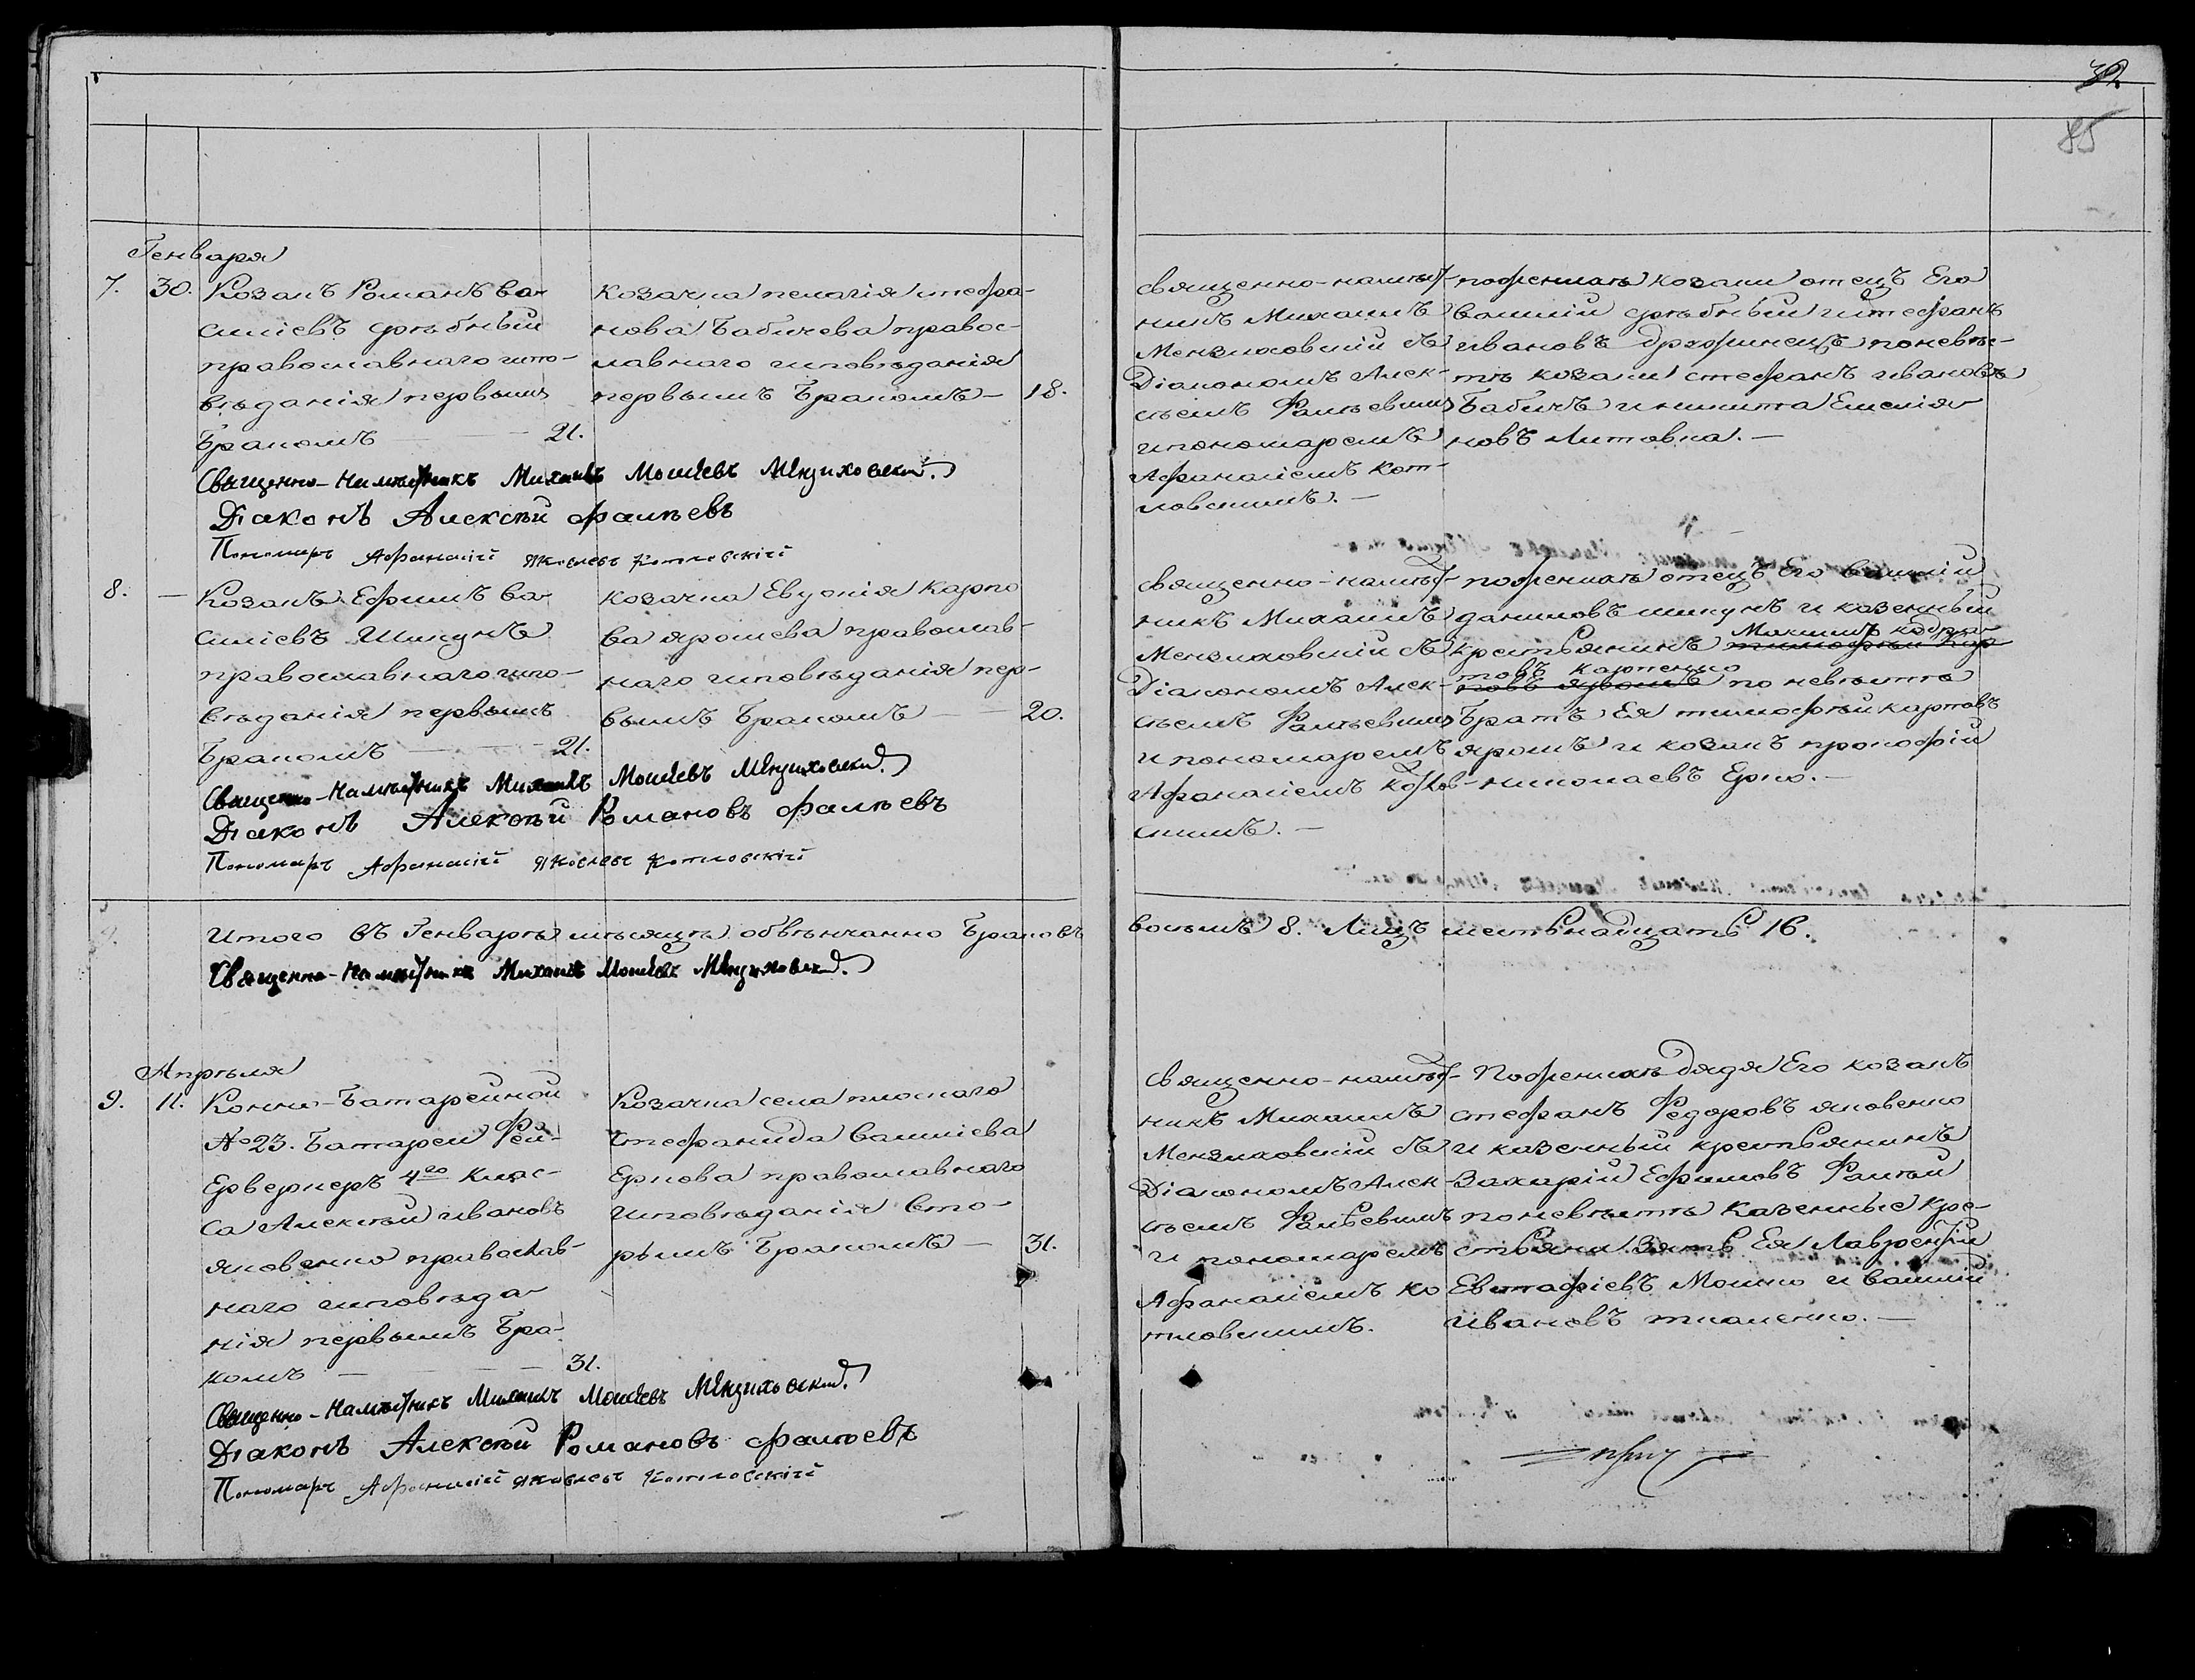 32
85
Генваря
7. 30. Козакъ Романъ Ва-
силіевъ Дрѣбный
православнаго испо-
вѣданія первымъ
бракомъ — 21.
козачка пелагія стефа-
нова Бабичева правос-
лавнаго исповѣданія
первымъ бракомъ — 18.
священно-намѣст-
никъ Михаилъ
Мензиховскій съ
Діакономъ Алек-
сѣемъ Фалѣевымъ
и пономаремъ
Афанасіемъ Кот-
ловскимъ. —
по женихѣ козаки отецъ Его
Василій дрѣбный и стефанъ
Ивановъ по невѣс-
тѣ козаки стефанъ ивановъ
Бабичъ и никита Емелія-
новъ Литовка. —
Священно-Намѣстникъ Михаилъ Моисѣевъ Мензиховскій.
Діаконъ Алексѣй Фалѣевъ
Пономарь Афанасій Яковлевъ Котловскій
8. — Козакъ Ефимъ Ва-
силіевъ Шикунъ
православнаго испо-
вѣданія первымъ
бракомъ — 21.
козачка Евдокія Карпо
ва ярошева православ-
наго исповѣданія пер-
вымъ бракомъ — 20.
священно-намѣст-
никъ Михаилъ
Мензиховскій съ
Діакономъ Алек-
сѣемъ Фалѣевымъ
и пономаремъ
Афанасіемъ Котлов-
скимъ. —
по женихѣ отецъ Его Василій
даниловъ шикунъ и казенный
крестьянинъ Максимъ кодра-
товъ карпенко по невѣстѣ
братъ Ея тимофѣй карповъ
ярошъ и козакъ прокофій
николаевъ Ерко. —
Священно-Намѣстникъ Михаилъ Моисѣевъ Мензиховскій.
Діаконъ Алексѣй Романовъ Фалѣевъ
Пономарь Афанасій Яковлевъ Котловскій
Итого въ Генварѣ мѣсяцѣ обвѣнчанно браковъ восѣмъ 8. Лицъ шестьнадцать 16.
Священно-Намѣстникъ Михаилъ Моисѣевъ Мензиховскій.
Апрѣля
9. 11. Конно-Батарейной
№ 23. Батареи Фей-
Ерверкеръ 4го клас-
са Алексѣй ивановъ
яковенко православ-
наго исповѣда-
нія первымъ бра-
комъ — 31.
Козачка села плоскаго
Стефанида Василіева
Еркова православнаго
исповѣданія вто-
рымъ бракомъ — 31.
священно-намѣст-
никъ Михаилъ
Мензиховскій съ
Діакономъ Алек-
сѣемъ Фальевымъ
и пономаремъ
Афанасіемъ Ко
тловскимъ.
По женихѣ дядя Его козакъ
стефанъ Федоровъ яковенко
и казенный крестьянинъ
Захарій Ефимовъ Фалѣй
по невѣстѣ казенные кре-
стьяни зять Ея Лаврентій
Евстафіевъ Мошко и Василій
Ивановъ ткаченко. —
Священно-Намѣстникъ Михаилъ Моисѣевъ Мензиховскій.
Діаконъ Алексѣй Романовъ Фалѣевъ
Пономарь Афанасій Яковлевъ Котловскій